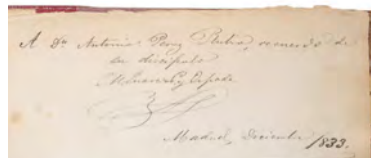 A Dn Antonio Perez Rubio, recuerdo de
su discipulo
Madrid, Diciembre 1833.